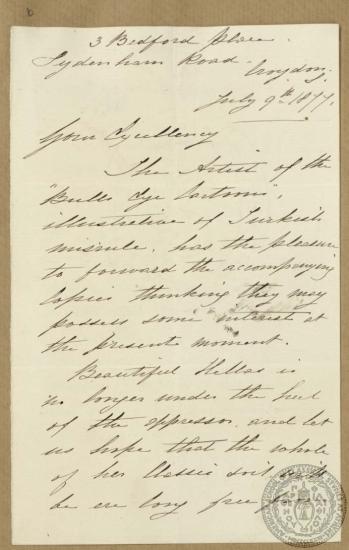 3 Bedford Place.
Sydenham Road.
Croydon.
July 9th 1877.
Your Excellency
The Artist of the
"Bulls Eye Cartoons",
illustrative of Turkish
misrule, has the pleasure
to forward the accompanying
Copies thinking they may
possess some interest at
the present moment.
Beautiful Hellas is
no longer under the heel
of the oppressor, and let
us hope that the whole
of her Classic soil will
be ere long free